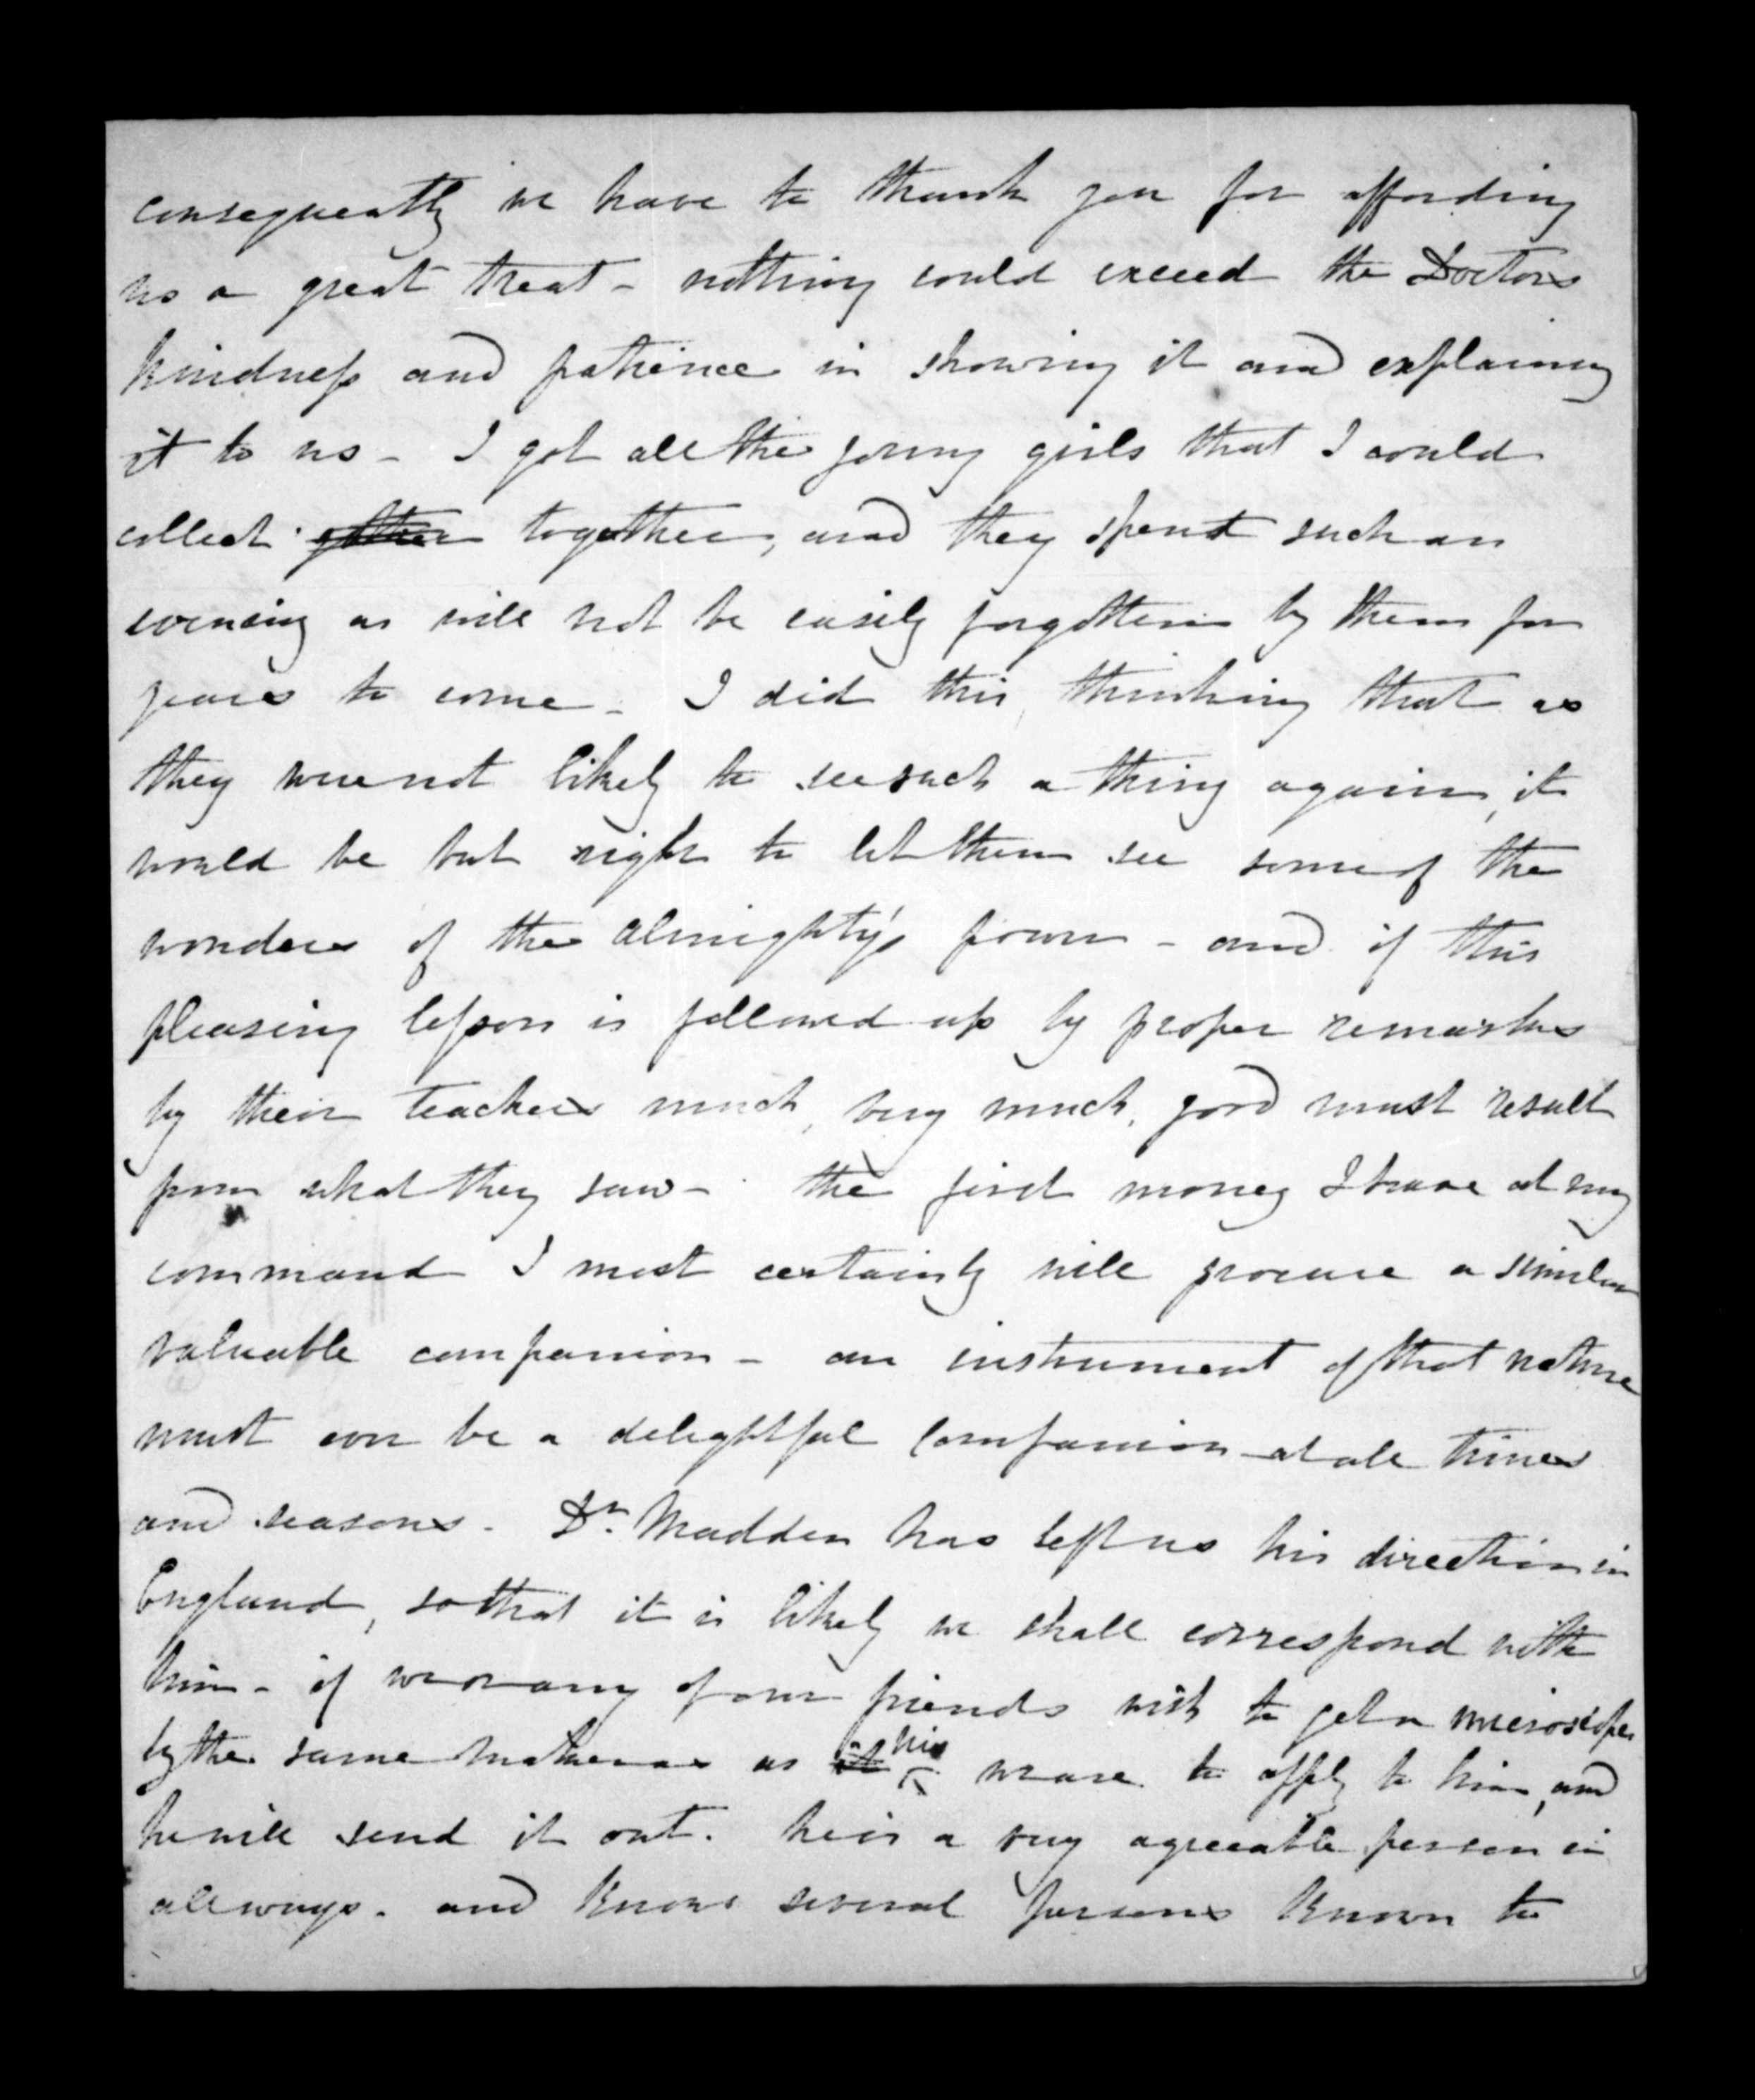 consequently we have to thank you for affording
us a great treat - nothing could exceed the Doctors
kindness and patience in showing it and explaining
it to us - I got all the young girls that I could
collect together, and they spent such an
evening as will not be easily forgotten by them for
years to come - I did this, thinking that as
they were not likely to see such a thing again, it
would be but right to let them see some of the
wonders of the Almighty's power - and if this
pleasing lesson is followed up by proper remarks
by their teachers much, very much, good must result
from what they saw - the first money I have at my
command I most certainly will procure a similar
valuable companion - an instrument of that nature
must ever be a delightful companion at all times
and seasons - Dr. Madden has left us his direction in
England, so that it is likely we shall correspond with
him - if we or any of our friends wish to get a microscope
by the same maker as his we are to apply to him, and
he will send it out. he is a very agreeable person in
all ways. and knows several persons known to